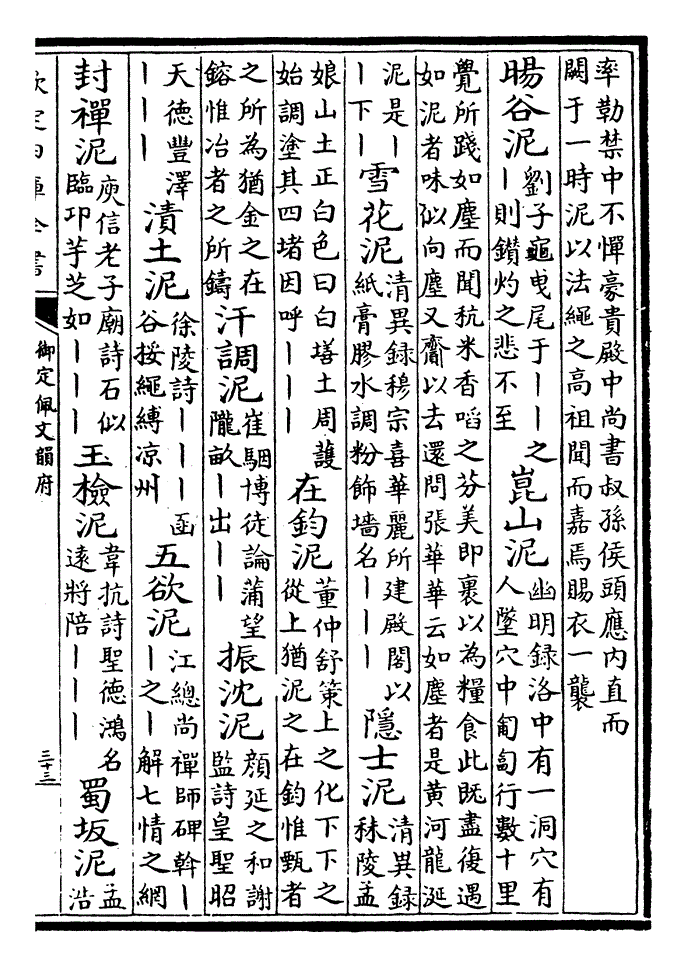 率勒禁中不憚豪貴殿中尚書叔孫侯頭應内直而
闕于一時泥以法繩之高祖聞而嘉焉賜衣一襲
暘谷泥
劉子龜曳尾于丨丨之
丨則鑽灼之悲不至
崑山泥
幽明録洛中有一洞穴有
人墜穴中匍匐行數十里
覺所踐如塵而聞秔米香啗之芬美即裹以為糧食此既盡復遇
如泥者味似向塵又齎以去還問張華華云如塵者是黄河龍涎
泥是丨
丨下丨
雪花泥
清異録穆宗喜華麗所建殿閣以
紙膏膠水調粉飾墻名丨丨丨
隱士泥
清異録
秣陵孟
娘山土正白色曰白墡土周䕶
始調塗其四堵因呼丨丨丨
在鈞泥
董仲舒策上之化下下之
從上猶泥之在鈞惟甄者
之所為猶金之在
鎔惟冶者之所鑄
汗調泥
崔駰博徒論蒲望
隴畝丨出丨丨
振沈泥
顔延之和謝
監詩皇聖昭
天德豐澤
丨丨丨
漬土泥
徐陵詩丨丨丨函
谷挼繩縛凉州
五欲泥
江總尚禪師碑斡丨
丨之丨解七情之網
封禪泥
庾信老子廟詩石似
臨邛芋芝如丨丨丨
玉檢泥
韋抗詩聖德鴻名
遠將陪丨丨丨
蜀坂泥
孟
浩
欽定四庫全書
御定佩文韻府
三十三